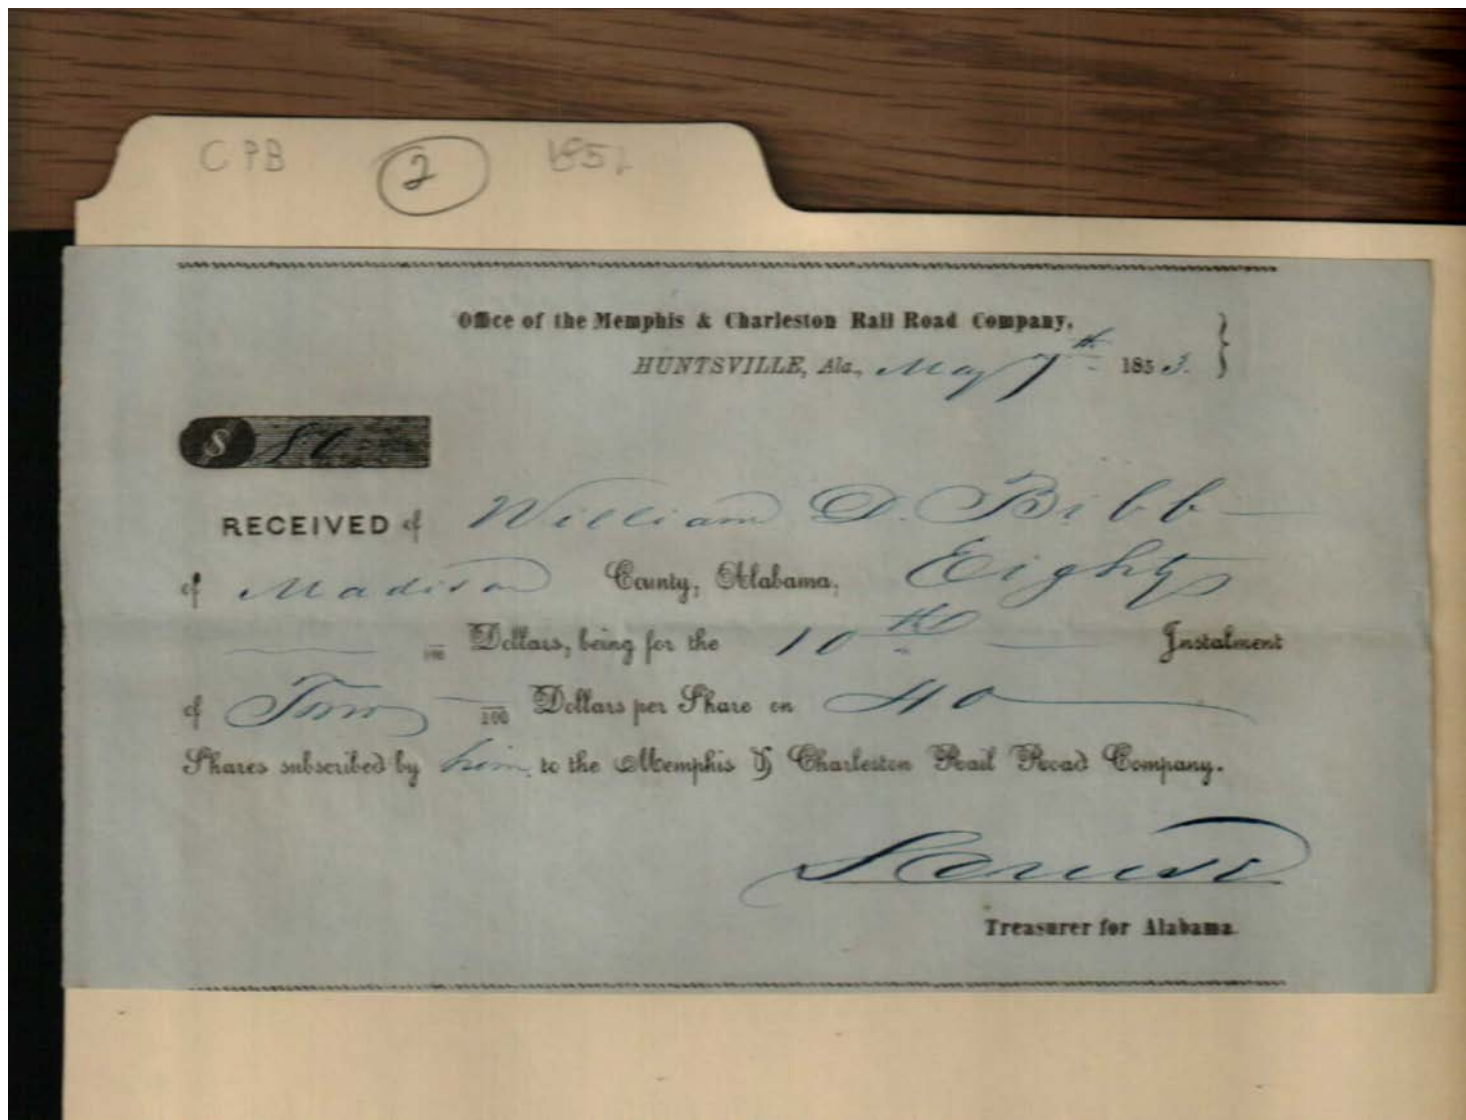 CPB 2 185
Office of the Memphis & Charleston Rail Road Company,
HUNTSVILLE, Ala., May 7th 1853.
$ 80
RECEIVED of William D. Bibb
of Madison County, Alabama, Eighty
/100 Dollars, being for the 10th Instalment
of Two /100 Dollars per Share on 40
Shares subscribed by him, to the Memphis & Charleston Rail Road Company.
Treasurer for Alabama.